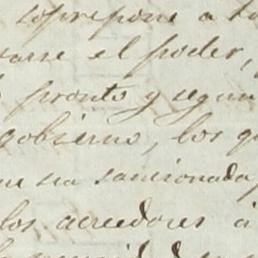 sobrepone a to
el poder,
pronto y segun
gobierno, los q
sea sancionada
los acreedores á